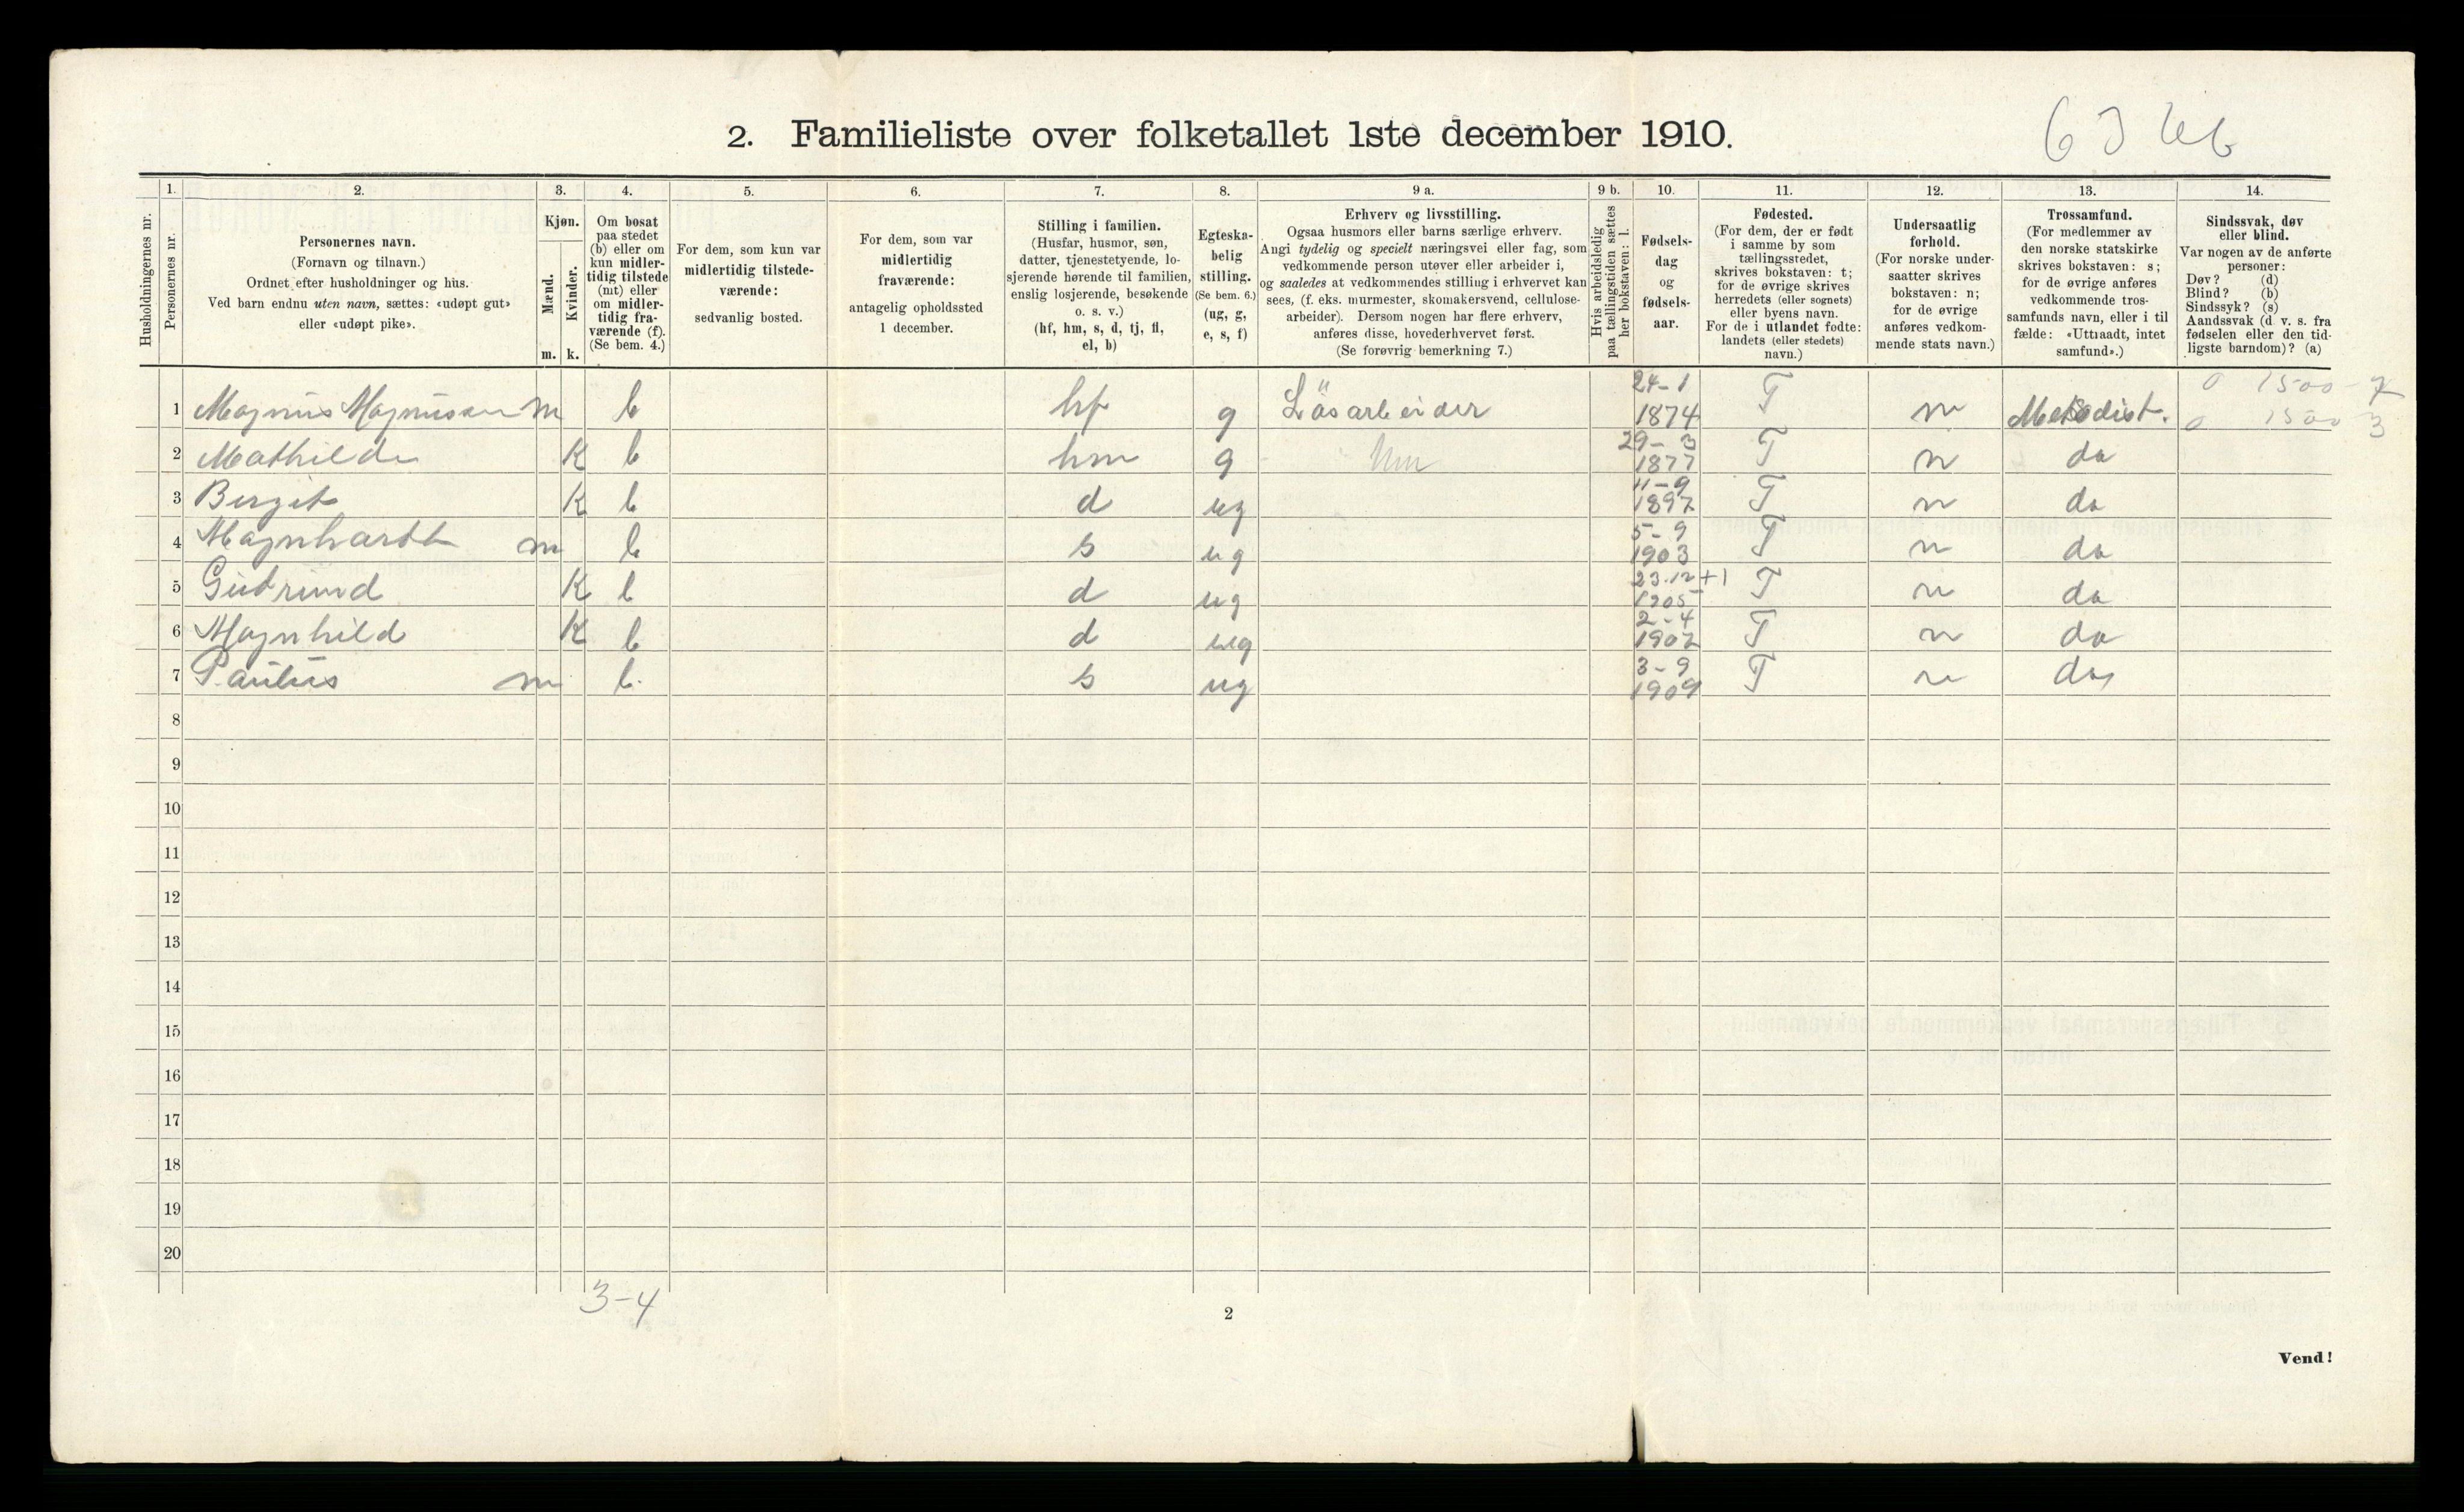 2. Familieliste over folketallet 1ste december 1910.
1. 2. 3. 4. 5. 6. 7. 8. 9 a. 9 b. 10. 11. 12. 13. 14.
Husholdningernes nr.
Personernes nr.
Personernes navn.
(Fornavn og tilnavn.)
Ordnet efter husholdninger og hus.
Ved barn endnu uten navn, sættes: «udøpt gut»
eller «udøpt pike».
Kjøn.
Mænd.
Kvinder.
m. k.
Om bosat
paa stedet
(b) eller om
kun midler-
tidig tilstede
(mt) eller
om midler-
tidig fra-
værende (f).
(Se bem. 4.)
For dem, som kun var
midlertidig tilstede-
værende:
sedvanlig bosted.
For dem, som var
midlertidig
fraværende:
antagelig opholdssted
1 december.
Stilling i familien.
(Husfar, husmor, søn,
datter, tjenestetyende, lo-
sjerende hørende til familien,
enslig losjerende, besøkende
o. s. v.)
(hf, hm, s, d, tj, fl,
el, b)
Egteska-
belig
stilling.
(Se bem. 6.)
(ug, g,
e, s, f)
Erhverv og livsstilling.
Ogsaa husmors eller barns særlige erhverv.
Angi tydelig og specielt næringsvei eller fag, som
vedkommende person utøver eller arbeider i,
og saaledes at vedkommendes stilling i erhvervet kan
sees, (f. eks. murmester, skomakersvend, cellulose-
arbeider). Dersom nogen har flere erhverv,
anføres disse, hovederhvervet først.
(Se forøvrig bemerkning 7.)
Hvis arbeidsledig
paa tællingstiden sættes
her bokstaven: l.
Fødsels-
dag
og
fødsels-
aar.
Fødested.
(For dem, der er født
i samme by som
tællingsstedet,
skrives bokstaven: t;
for de øvrige skrives
herredets (eller sognets)
eller byens navn.
For de i utlandet fødte:
landets (eller stedets)
navn.)
Undersaatlig
forhold.
(For norske under-
saatter skrives
bokstaven: n;
for de øvrige
anføres vedkom-
mende stats navn.)
Trossamfund.
(For medlemmer av
den norske statskirke
skrives bokstaven: s;
for de øvrige anføres
vedkommende tros-
samfunds navn, eller i til
fælde: «Uttraadt, intet
samfund».)
Sindssvak, døv
eller blind.
Var nogen av de anførte
personer:
Døv? (d)
Blind? (b)
Sindssyk? (s)
Aandssvak (d. v. s. fra
fødselen eller den tid-
ligste barndom)? (a)
1 Magnus Magnusen m b hf g Løsarbeider 24-1 1874 T n Metodist. 0 1500
0 1500 3
2 Mathilde K b hm g 29-3 1877 T n do
3 Birgit K b d ug 11-9 1897 T n do
4 Magnhardt m b s ug 5-9 1903 T n do
5 Gudrund K b d ug 23.12 +1 1905 T n do
6 Magnhild K b d ug 2-4 1907 T n do
7 Paulus m b s ug 3-9 1909 T n do
8
9
10
11
12
13
14
15
16
17
18
19
20
3-4
2
Vend!